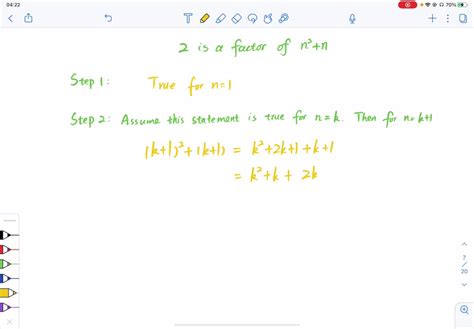 04:22
70%
2 is a factor of n²+n
Step 1: True for n=1
Step 2: Assume this statement is true for n=k. Then for n=k+1
(k+1)²+(k+1) = k²+2k+1+k+1
= k²+k+ 2k
7
/
20